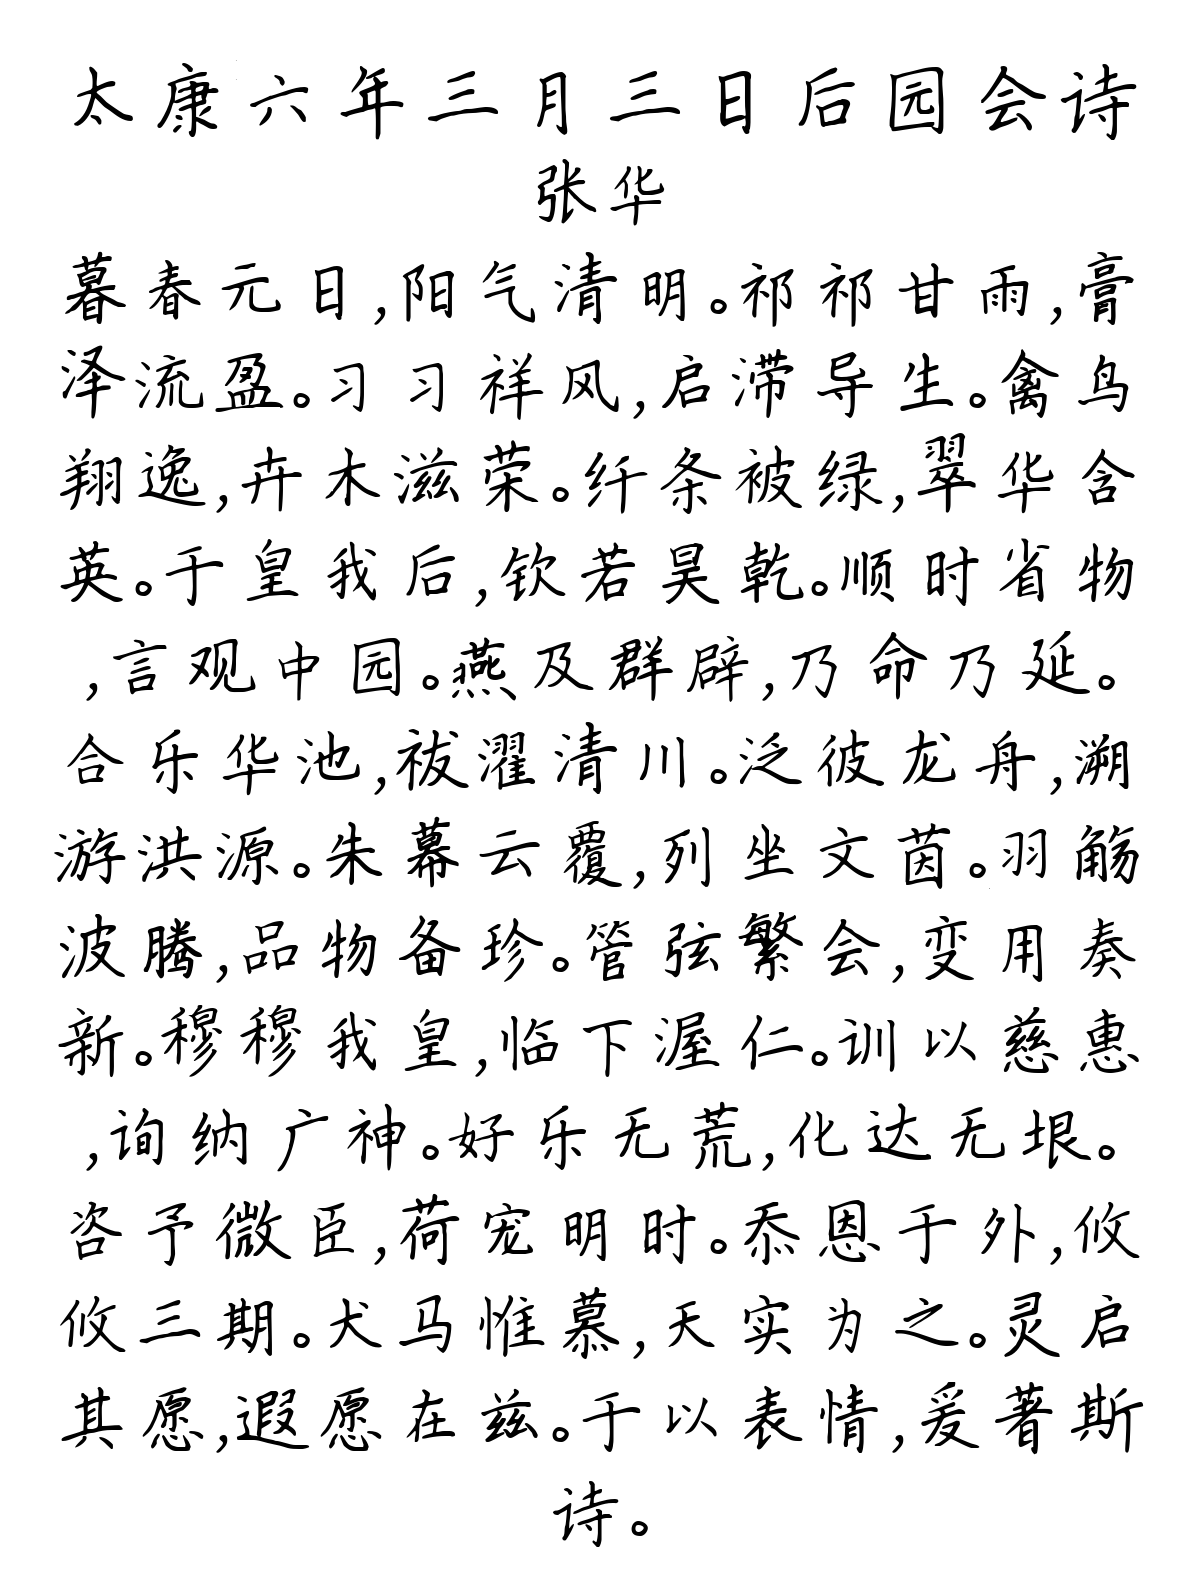 太康六年三月三日后园会诗
张华
暮春元日,阳气清明。祁祁甘雨,膏
泽流盈。习习祥风,启滞导生。禽鸟
翔逸,卉木滋荣。纤条被绿,翠华含
英。于皇我后,钦若昊乾。顺时省物
,言观中园。燕及群辟,乃命乃延。
合乐华池,祓濯清川。泛彼龙舟,溯
游洪源。朱幕云覆,列坐文茵。羽觞
波腾,品物备珍。管弦繁会,变用奏
新。穆穆我皇,临下渥仁。训以慈惠
,询纳广神。好乐无荒,化达无垠。
咨予微臣,荷宠明时。忝恩于外,攸
攸三期。犬马惟慕,天实为之。灵启
其愿,遐愿在兹。于以表情,爰著斯
诗。